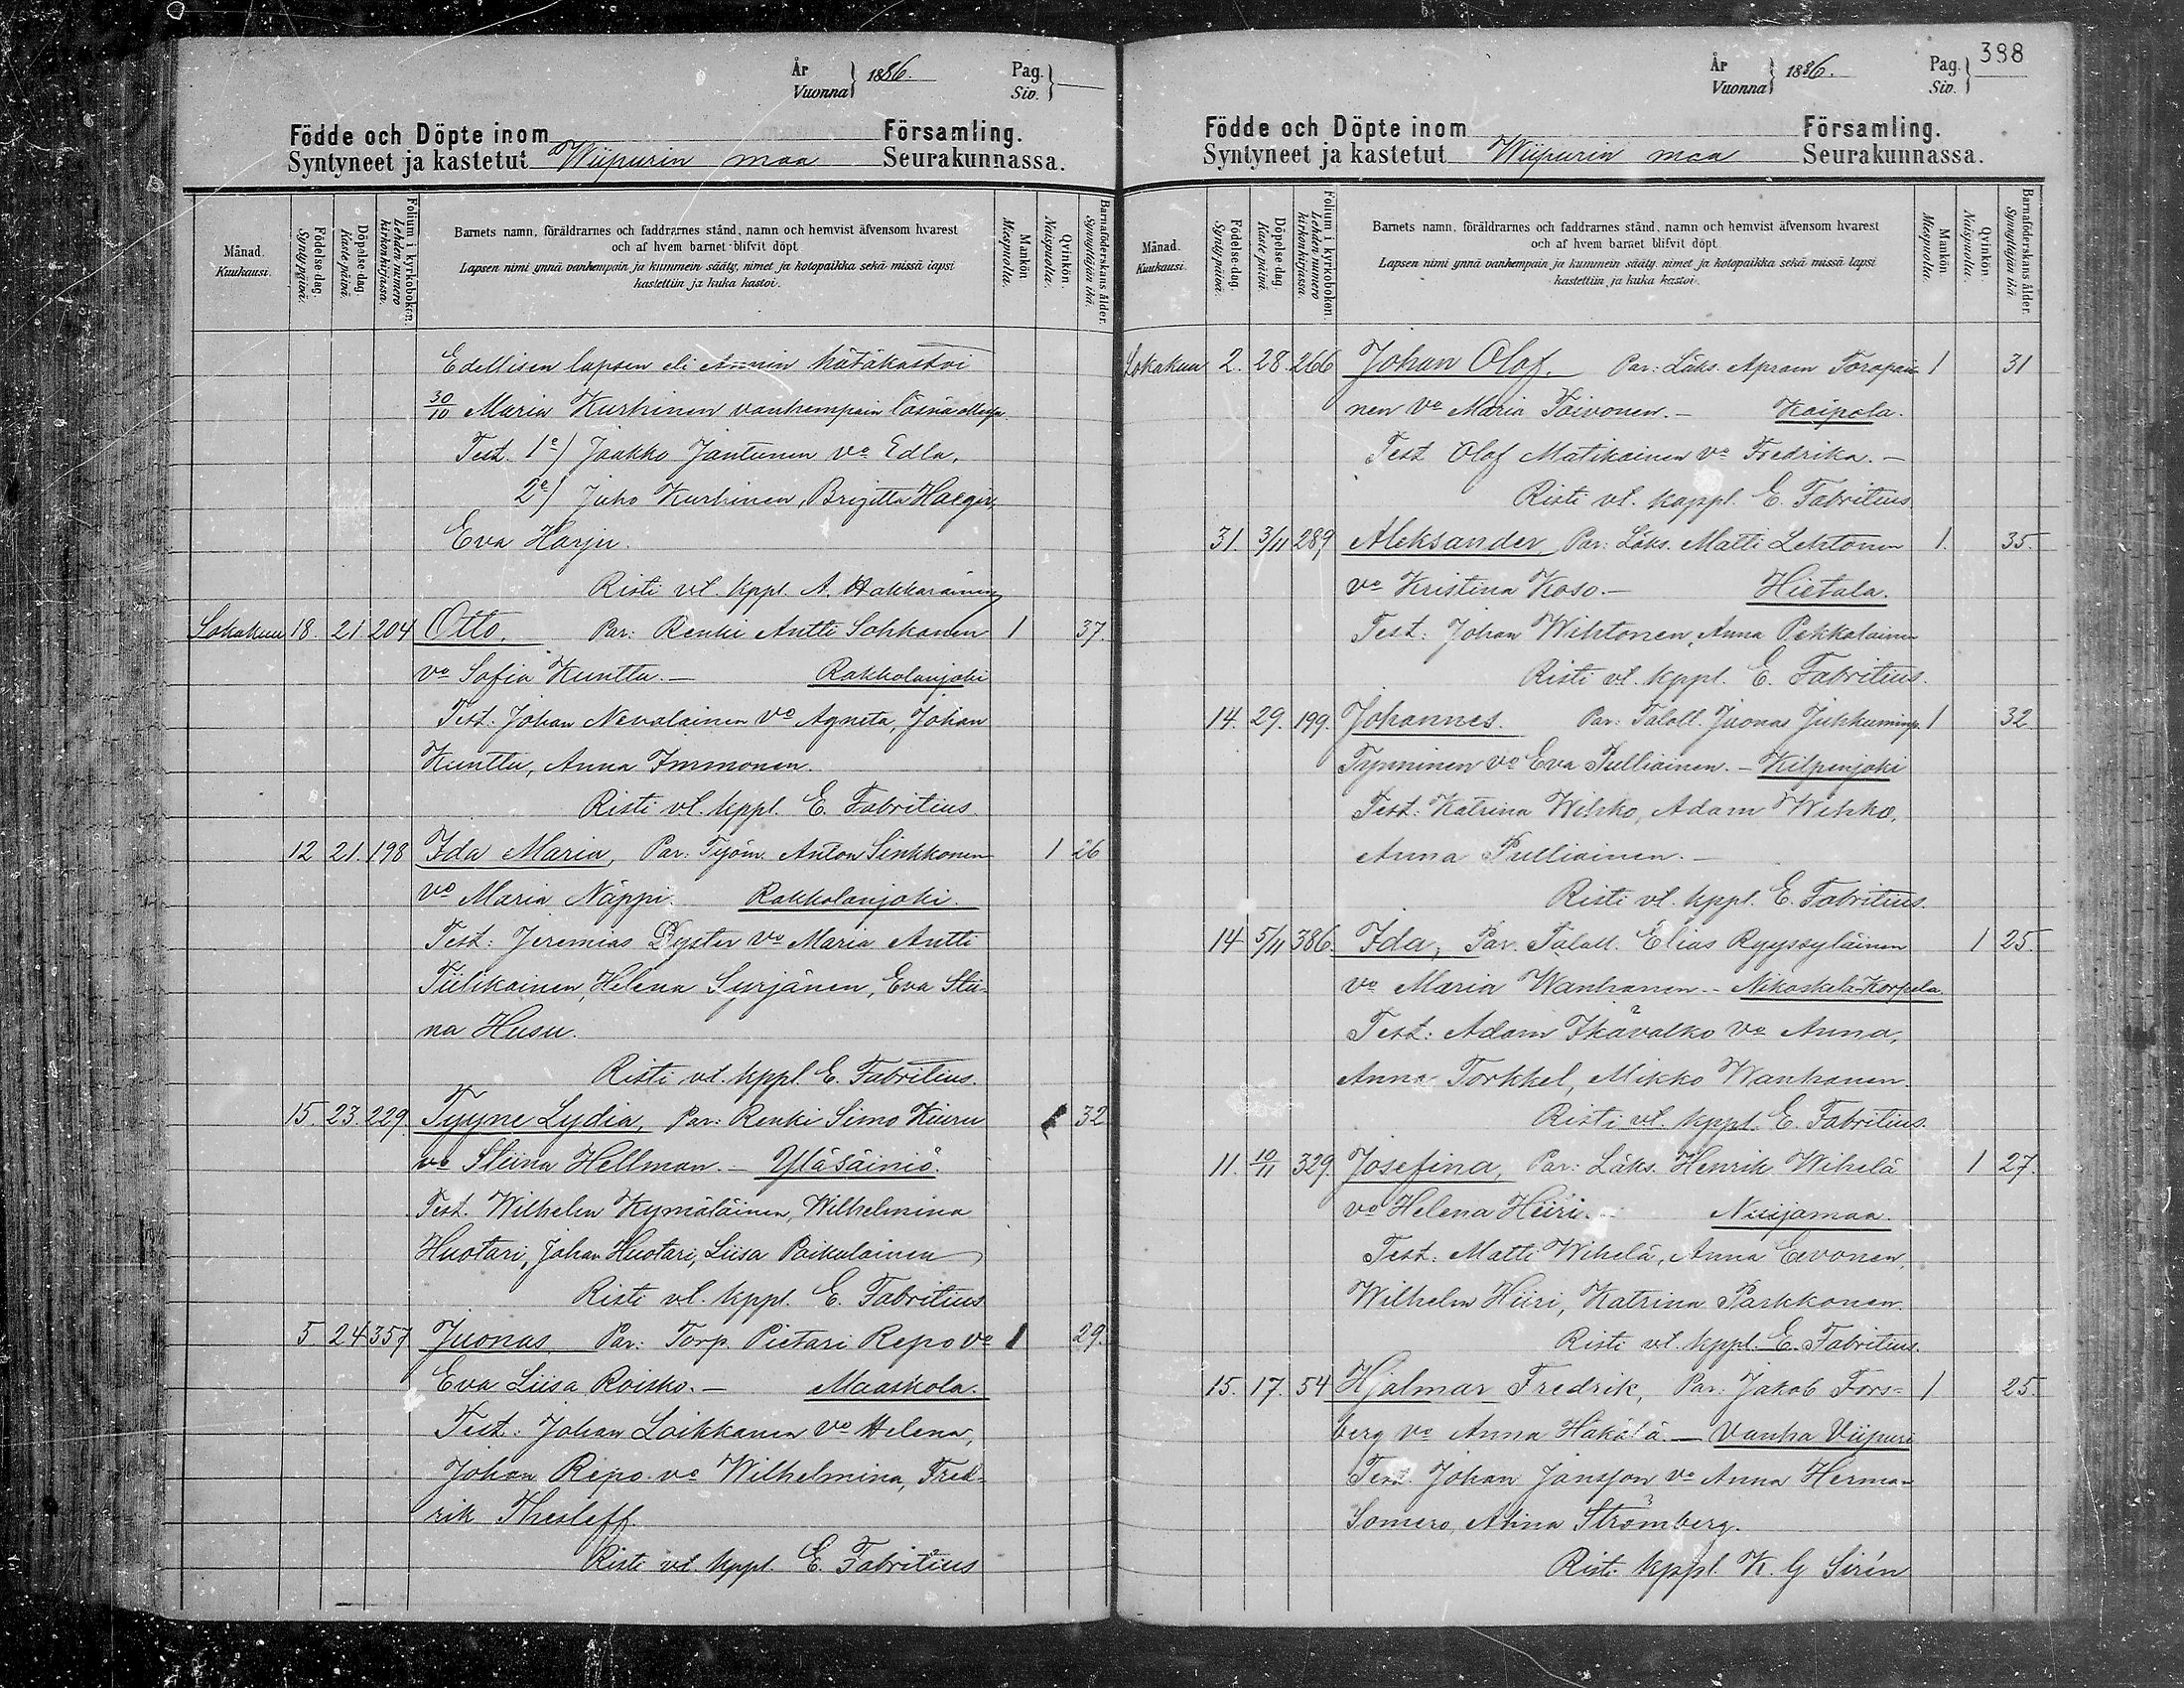 År
Vuonna } 1886.
Pag.
Siv. }
Födde och Döpte inom
Syntyneet ja kastetut Wiipurin maa
Församling.
Seurakunnassa.
Månad.
Kuukausi.
Födelse-dag.
Syntypäivä.
Döpelse-dag.
Kaste päivä.
Folium i kyrkoboken.
Lehden numero kirkonkirjassa.
Barnets namn, föräldrarnes och faddrarnes stånd, namn och hemvist äfvensom hvarest
och af hvem barnet blifvit döpt.
Lapsen nimi ynnä vanhempain ja kummein sääty, nimet ja kotopaikka sekä missä lapsi
kastettiin ja kuka kastoi.
Mankön.
Miespuolta.
Qvinkön.
Naispuolta.
Barnaföderskans ålder.
Synnyttäjän ikä.
Edellisen lapsen eli Annin hätäkastoi
30/10 Maria Kurhinen vanhempain läsnä ollessa.
Test. 1e) Jaakko Jantunen vo Edla,
2e) Juho Kurhinen, Brigitta
Eva Harju.
Risti vl. kppl. A. Hakkarainen
Lokakuu 18. 21 204 Otto, Par: Renki Antti Sohkanen 1 37.
vo Sofia Kunttu. — Rakkolanjoki
Test: Johan Nevalainen vo Agneta, Johan
Kunttu, Anna Immonen.
Risti vl. kppl. E. Fabritius.
12 21. 198 Ida Maria, Par: Työm. Anton Sinkkonen 1 26
vo Maria Näppi. Rakkolanjoki.
Test: Jeremias Dyster vo Maria Antti
Tiilikainen, Helena Syrjänen, Eva Stii-
na Husu.
Risti vl. kppl. E. Fabritius.
15. 23. 229. Tyyne Lydia, Par: Renki Simo Kiuru 1 32
vo Stiina Hellman. — Yläsäiniö.
Test. Wilhelm Kymäläinen, Wilhelmina
Huotari, Johan Huotari, Liisa Paikulainen
Risti vl. kppl. E. Fabritius
5. 24 357 Juonas, Par: Torp. Pietari Repo vo 1 29.
Eva Liisa Roisko. — Maaskola.
Test: Johan Loikkanen vo Helena,
Johan Repo vo Wilhelmina, Fred-
rik Thesleff.
Risti vl. kppl. E. Fabritius
År
Vuonna } 1886.
Pag.
Siv. } 388
Födde och Döpte inom
Syntyneet ja kastetut Wiipurin maa
Församling.
Seurakunnassa.
Månad.
Kuukausi.
Födelse-dag.
Syntypäivä.
Döpelse-dag.
Kaste päivä.
Folium i kyrkoboken.
Lehden numero kirkonkirjassa.
Barnets namn, föräldrarnes och faddrarnes stånd, namn och hemvist äfvensom hvarest
och af hvem barnet blifvit döpt.
Lapsen nimi ynnä vanhempain ja kummein sääty, nimet ja kotopaikka sekä missä lapsi
kastettiin ja kuka kastoi.
Mankön.
Miespuolta.
Qvinkön.
Naispuolta.
Barnaföderskans ålder.
Synnyttäjän ikä.
Lokakuu 2. 28. 266 Johan Olof. Par: Läks. Apram Toropai- 1 31
nen vo Maria Toivonen. — Kaipola.
Test Olof Matikainen vo Fredrika. —
Risti vl. kappl. E. Fabritius
31. 3/11 289 Aleksander, Par: Läks. Matti Lehtonen 1. 35.
vo Kristina Koso. — Hietala.
Test: Johan Wihtonen, Anna Pekkalainen
Risti vl. kppl. E. Fabritius.
14. 29. 199. Johannes. Par: Taloll. Juonas Jukkuminp. 1 32.
Tynninen vo Eva Pulliainen. — Kilpenjoki
Test: Katrina Wihko, Adam Wihko,
Anna Pulliainen. —
Risti vl. kppl. E. Fabritius.
14 5/11 386. Ida, Par. Taloll. Elias Ryyssyläinen 1 25.
vo Maria Wanhanen. - Nikaskela-Korpela.
Test: Adam Ikävalko vo Anna,
Anna Torkkel, Mikko Wanhanen.
Risti vl. kppl. E. Fabritius.
11. 10/11 329. Josefina, Par: Läks. Henrik Wihelä 1 27.
vo Helena Hiiri. - Nuijamaa.
Test: Matti Wihelä, Anna Eevonen,
Wilhelm Hiiri, Katrina Parkkonen.
Risti vl. kppl. E. Fabritius.
15. 17. 54 Hjalmar Fredrik, Par: Jakob Fors= 1 25.
berg vo Anna Häkälä. — Vanha Viipuri
Test. Johan Jansson vo Anna Herman
Somero, Alina Strömberg.
Risti kppl. K. G Sirén